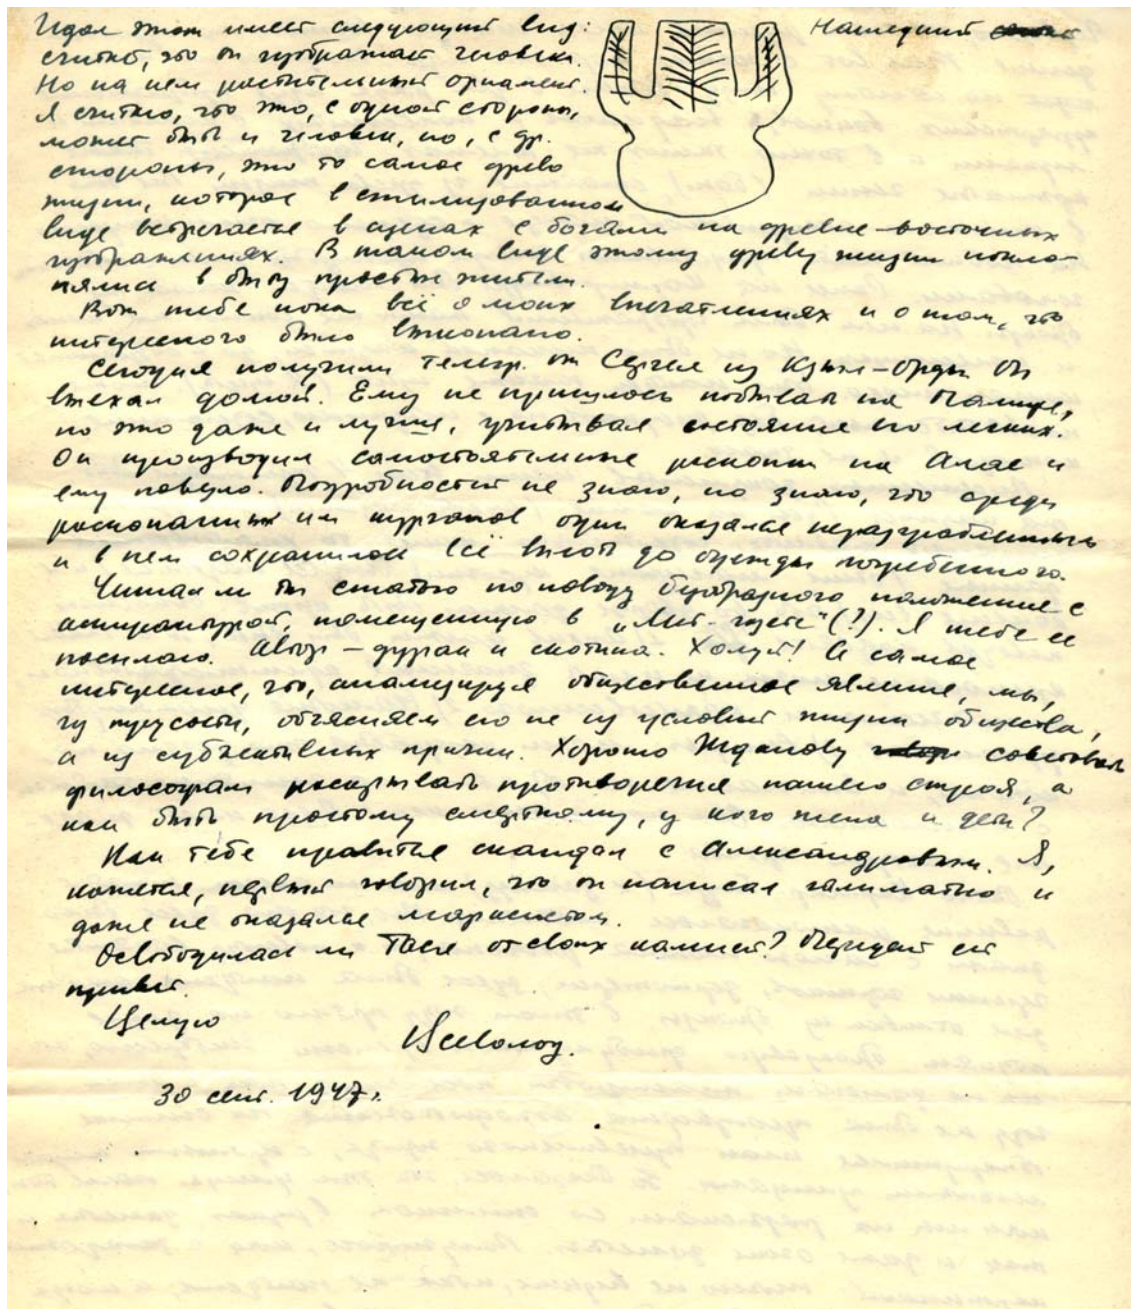 Идол этот имеет следующий вид:
Нашедший
считают, что он изображает человека.
Но на нем растительный орнамент.
Я считаю, что это, с одной стороны,
может быть и человек, но, с др.
стороны, это то самое древо
жизни, которое в стилизованном
виде встречается в сценах с богами на древне-восточных
изображениях. В таком виде этому древу жизни покло-
нялись в быту простые жители.
Вот тебе пока всё о моих впечатлениях и о том, что
интересного было выкопано.
Сегодня получили телегр. от Сергея из Кзыл-Орды. Он
выехал домой. Ему не пришлось побывать на Памире,
но это даже и лучше, учитывая состояние его легких.
Он производил самостоятельные раскопки на Алае и
ему повезло. Подробностей не знаю, но знаю, что среди
раскопанных им курганов один оказался неразграбленным
и в нем сохранилось всё вплоть до одежды погребенного.
Читал ли ты статью по поводу безобразного положения с
аспирантурой, помещенную в „Лит-газете" (?). Я тебе ее
посылаю. Автор – дурак и скотина. Холуй! А самое
интересное, что, анализируя общественное явление, мы,
из трусости, объясняем его не из условий жизни общества,
а из субъективных причин. Хорошо Жданову советовать
философам раскрывать противоречия нашего строя, а
как быть простому смертному, у кого жена и дети?
Как тебе нравится скандал с Александровым. Я,
кажется, первый говорил, что он написал галиматью и
даже не оказался марксистом.
Освободилась ли Тася от своих камней? Передай ей
привет.
Целую
Всеволод.
30 сент. 1947 г.